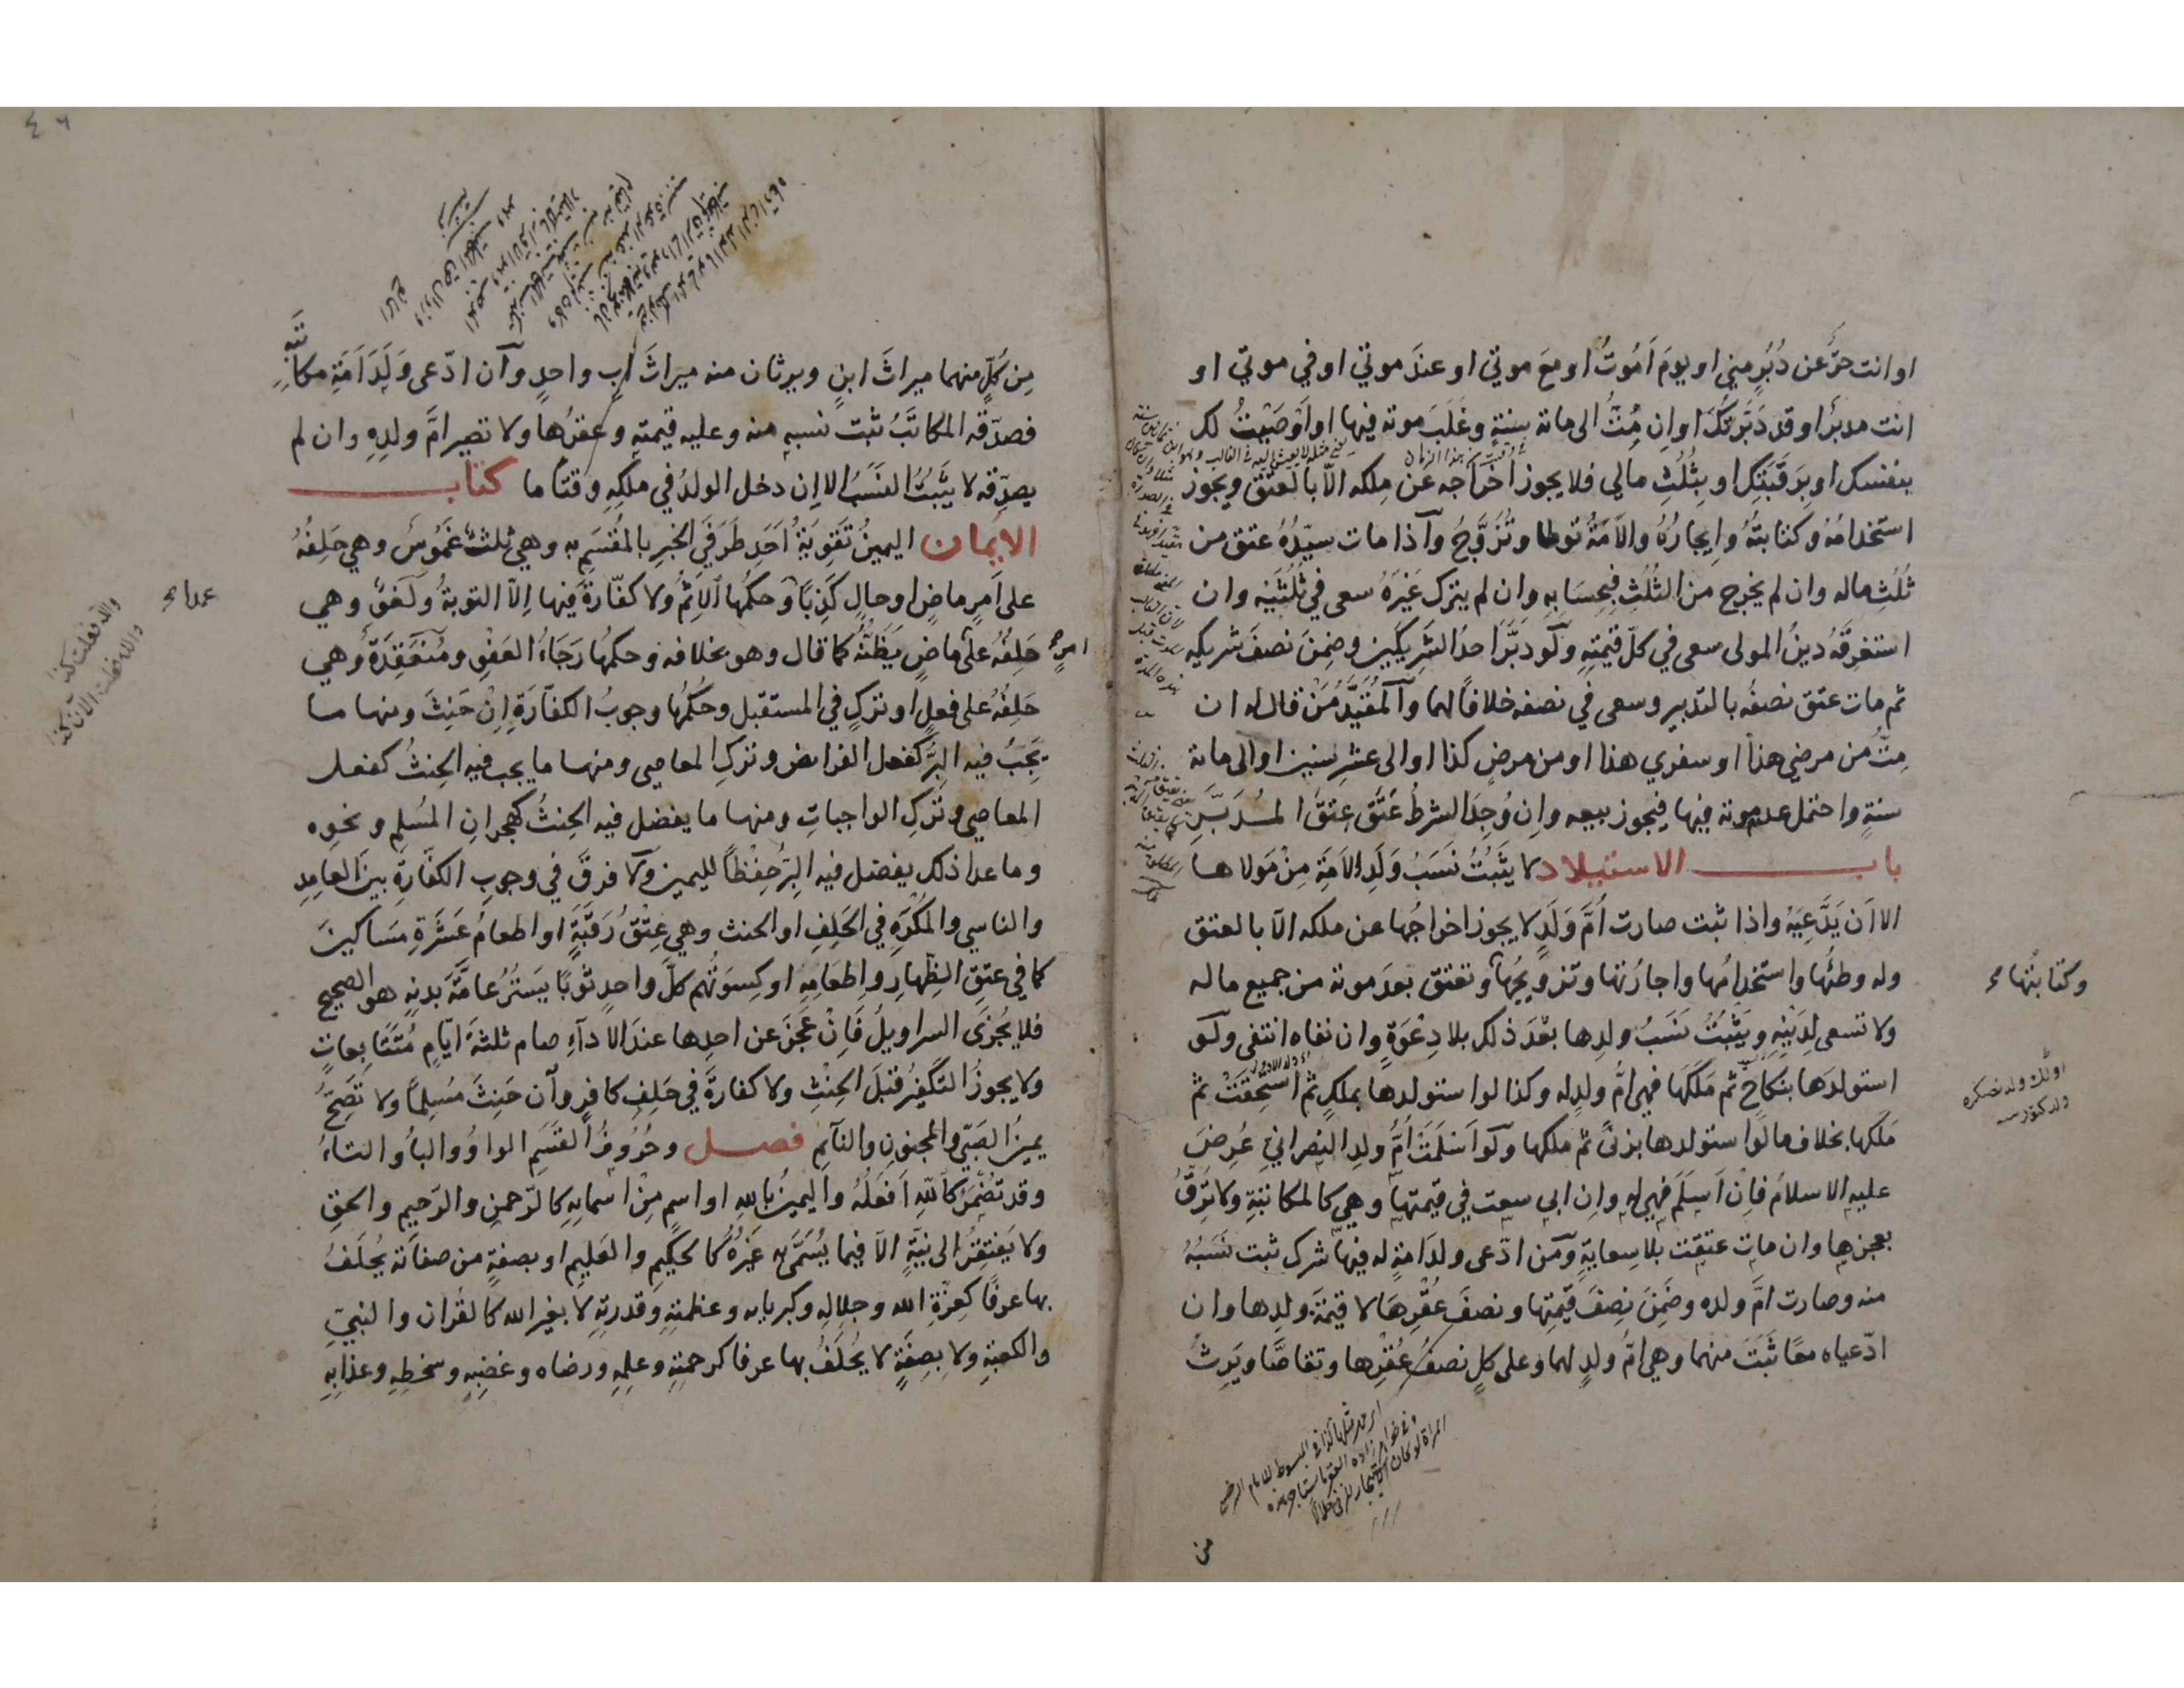 او انت حرّ عن دُبُرٍ مني او يومَ اَمُوتُ او مع موتي او عندَ موتي او في موتي او
انت مدبرٌ او قد دَبَّرتُكَ او اِن مِتُّ الى مائة سنةٍ وغَلَبَ موته فيها او اَوصَيْتُ لك
بنفسك او بِرَقَبَتِكَ او بِثُلُثِ مالي فلا يجوز اخراجه عن مِلكه الّا بالعتق ويجوز
استخدامُهُ وكتابتُهُ وايجارُهُ والاَمَةُ توطا وتُزَوَّجُ وآذا مات سيّدُهُ عتق من
ثُلُثِ ماله وان لم يخرج من الثُلُثِ فبِحِسَابِهِ وان لم يترك غَيْرَهُ سعى في ثُلُثَيْهِ وان
استغرقَهُ دينُ المولى سعى في كلّ قيمتِهِ ولَو دبَّرَ احدُ الشَرِيكَين وضِمِنَ نصفَ شريكِهِ
ثم مات عتق نصفُه بالتدبير وسعى في نصفه خلافًا لهما وآلمُقَيَّدُ مَنْ قال له ان
مِتُّ من مرضي هذا او سفري هذا او من مرضٍ كذا او الى عشرِ سنين او الى مائة
سنةٍ واحتمل عدم موته فيها فيجوز بيعه واِن وُجِدَ الشرطُ عَتَقَ عِتقَ المُدَبَّرِ
باب الاستيلاد لا يَثبُتُ نَسَبُ وَلَدِ الاَمَةِ مِنْ مَولاها
الا اَن يَدَّعِيَهُ واذا ثبت صارت اُمَّ وَلَدٍ لا يجوز اخراجُها عن ملكه الّا بالعتق
وله وطئُها واستخدامُها واجارتُها وتزويجُها وتعتق بعدَ موته من جميع ماله
وكتابتُها صح
ولا تسعى لِدَيْنِهِ ويَثبُتُ نَسَبُ ولدِها بعْدَ ذلك بلا دِعْوَةٍ وان نفاه انتفى ولَو
استولدَها بنكاحٍ ثم مَلَكَها فهي امُّ ولدِه له وكذا لو استولدها بملكٍ ثم استُحِقَّتْ ثم
مَلَكها بخلاف ما لو استولدها بزنًى ثم ملكها ولَو اَسلَمَت اُمُّ ولدِ النصرانيِ عُرِضَ
عليه الاسلامُ فاِن اَسلَمَ فهي له واِن ابى سعت في قيمتها وهي كالمكاتبَةِ ولا تُرَقُّ
بعجزِها وان مات عتقت بلا سِعايةٍ ومَن ادّعى ولدَ امةٍ له فيها شرك ثبت نَسَبُهُ
منه وصارت امَّ ولده وضَمِنَ نِصفَ قيمتِها ونصفَ عُقْرِهَا لا قيمةَ ولدِها وان
ادّعياه معًا ثَبَتَ منهما وهي امُّ ولدٍ لهما وعلى كلٍ نصفُ عُقْرِها وتقاصَّا ويَرِثُ
من
مِن كُلٍّ منهما ميراثَ ابنٍ ويرثان منه ميراثَ ابٍ واحدٍ وآن ادّعى وَلَدَ اَمَةِ مكاتَبِهِ
فصدّقه المكاتَبُ ثبت نسبه منه وعليه قيمته وعقرُها ولا تصير امَّ ولدِهِ وان لم
يصدّقه لا يثبُتُ النسَبُ الا اِن دخل الولدُ في ملكِهِ وقتًا ما كتاب
الاَيمان اليمينُ تقوِيَةُ اَحَدِ طَرَفَيِ الخبرِ بالمُقسَمِ به وهي ثلثٌ غَمُوسٌ وهي حَلِفُهُ
على اَمرٍ ماضٍ او حالٍ كَذِبًا وحكمُها الاِثمُ ولا كفّارةَ فيها اِلّا التوبةُ ولَغوٌ وهي
عمدا صح
حَلِفُهُ على ماضٍ يَظنُّهُ كما قال وهو بخلافه وحكمُها رَجَاءُ العَفْوِ ومُنعَقِدَةٌ وهي
امرٍ صح
حَلِفُهُ على فعلٍ او تركٍ في المستقبل وحُكمُها وجوبُ الكفّارَةِ اِنْ حَنِثَ ومنها ما
يَجِبُ فيه البِرُّ كفعل الفرائض وتركِ المعاصي ومنها ما يجب فيه الحِنثُ كفعل
المعاصي وتَركِ الواجباتِ ومنها ما يفضل فيه الحِنثُ كهجرانِ المُسلِمِ ونحوِه
وما عدا ذلك يفضل فيه البِرُّ حِفْظًا لليمين ولا فرقَ في وجوبِ الكفّارَةِ بين العامِدِ
والناسي والمُكْرَهِ في الحَلِفِ او الحنث وهي عِتْقُ رَقَبَةٍ او اطعامُ عَشَرَةِ مَسَاكينَ
كما في عتِقِ الظِهَارِ واِطعَامِهِ او كِسوَتُهُم كلَّ واحدٍ ثوبًا يَستُرُ عامَّةَ بدنِهِ هو الصحيح
فلا يُجزئ السراويلُ فَاِنْ عَجَزَ عن احدِها عندَ الاَدآءِ صام ثلثةَ ايّامٍ مُتَتَابِعاتٍ
ولا يجوزُ التكفيرُ قبلَ الحِنْثِ ولا كفارةَ في حَلِفِ كافرٍ وآن حَنِثَ مُسلِمًا ولا تَصِحُّ
يمينُ الصَبِّي والمجنونِ والنآئِمِ فصل وحُرُوفُ القَسَمِ الواوُ والبآُ والتاءُ
وقد تُضْمَرُ كاَللهِ اَفعَلُهُ واليمينُ باللهِ او اسمٍ مِنْ اسمائِهِ كالرّحمنِ والرّحيمِ والحقِّ
ولا يَفتَقِرُ الى نيّةٍ الّا فيما يُسَمَّى به غَيْرُهُ كالحكيمِ والعَليمِ او بصفةٍ من صفاته يُحلَفُ
بها عرفًا كعِزّةِ الله وجلالِهِ وكبريائه وعظمتِهِ وقدرتِهِ لا بغير الله كالقرآن والنبيّ
والكعبةِ ولا بِصِفَةٍ لا يُحلَفُ بها عرفا كرحمتِهِ وعلمِهِ ورضاه وغضبِهِ وسخطِهِ وعذابِهِ